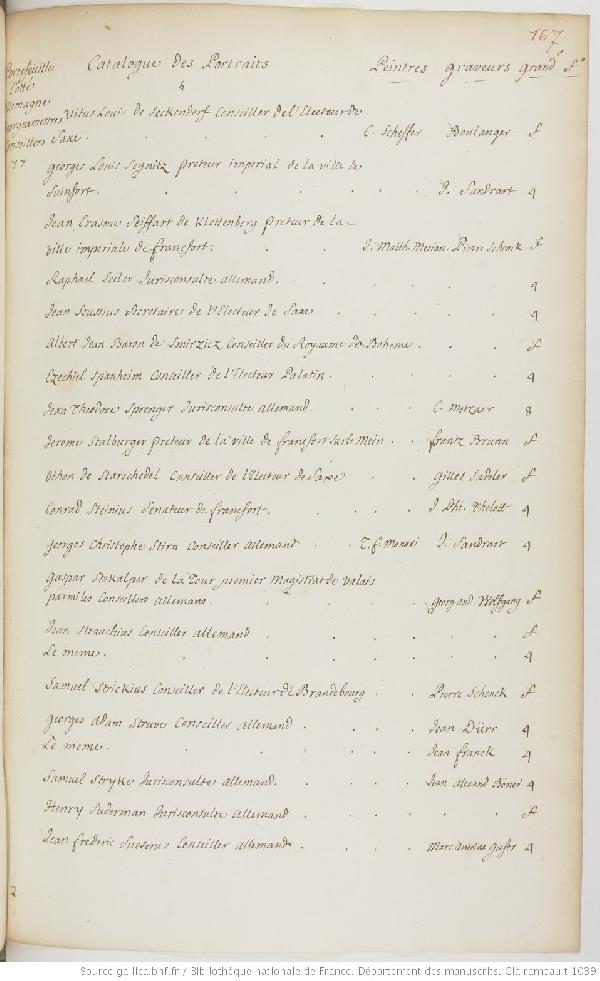 167
Portefeuille
Cotté
Allemagne
Bourguemestres
Conseillers
77
Catalogue des Portraits Peintres graveurs grand.r f.o
4
Vitus Louis de Seckendorf Conseiller de l'Electeur de
Saxe . . . . C. Scheffer Boulanger f
Georges Louis Segnitz preteur imperial de la ville de
Suinfort. . . . . . . J. Sandrart 4
Jean Erasme Seiffart de Klettenberg preteur de la
ville imperiale de francfort. . . J. Matth. Merian. Pierre Schenck f
Raphael Seiler Jurisconsulte allemand. . . . . 4
Jean Seussius Secretaire de l'Electeur de Saxe . . . . 4
Albert Jean Baron de Smirziez Conseiller du Royaume de Boheme . . . f
Ezechiel Spanheim Conseiller de l'Electeur Palatin. . . . . 4
Jean Theodore Sprenger Jurisconsulte allemand. . . C. Metzger 8
Jerome Stalburger preteur de la ville de francfort sur le Mein . . frantz Brunn f
Othon de Starschedel Conseiller de l'Electeur de Saxe . . Gilles Sadeler f
Conrad Steinius Senateur de francfort. . . . J. Phi. Thelott 4
Georges Christophe Stirn Conseiller allemand . . J. Sandrart 4
Gaspar Stokalper de la Tour premier Magistrat de Valais
parmi les Conseillers allemans. . . . . Georg and. Wolfgang f
Jean Strauchius Conseiller allemand . . . . . f
Le meme. . . . . . . 4
Samuel Strickius Conseiller de l'Electeur de Brandebourg . . Pierre Schenck f
Georges Adam Struve Conseiller allemand . . . Jean Dürr 4
Le meme. . . . . . Jean franck 4
Samuel Stryke Jurisconsulte allemand. . . . Jean alexand Böner 4
Henry Suderman Jurisconsulte allemand . . . . . f
Jean frederic Conseiller allemand . . . Marc Antoine 4
2
Source gallica.bnf.fr / Bibliothèque nationale de France. Département des manuscrits. Clairambault 1039